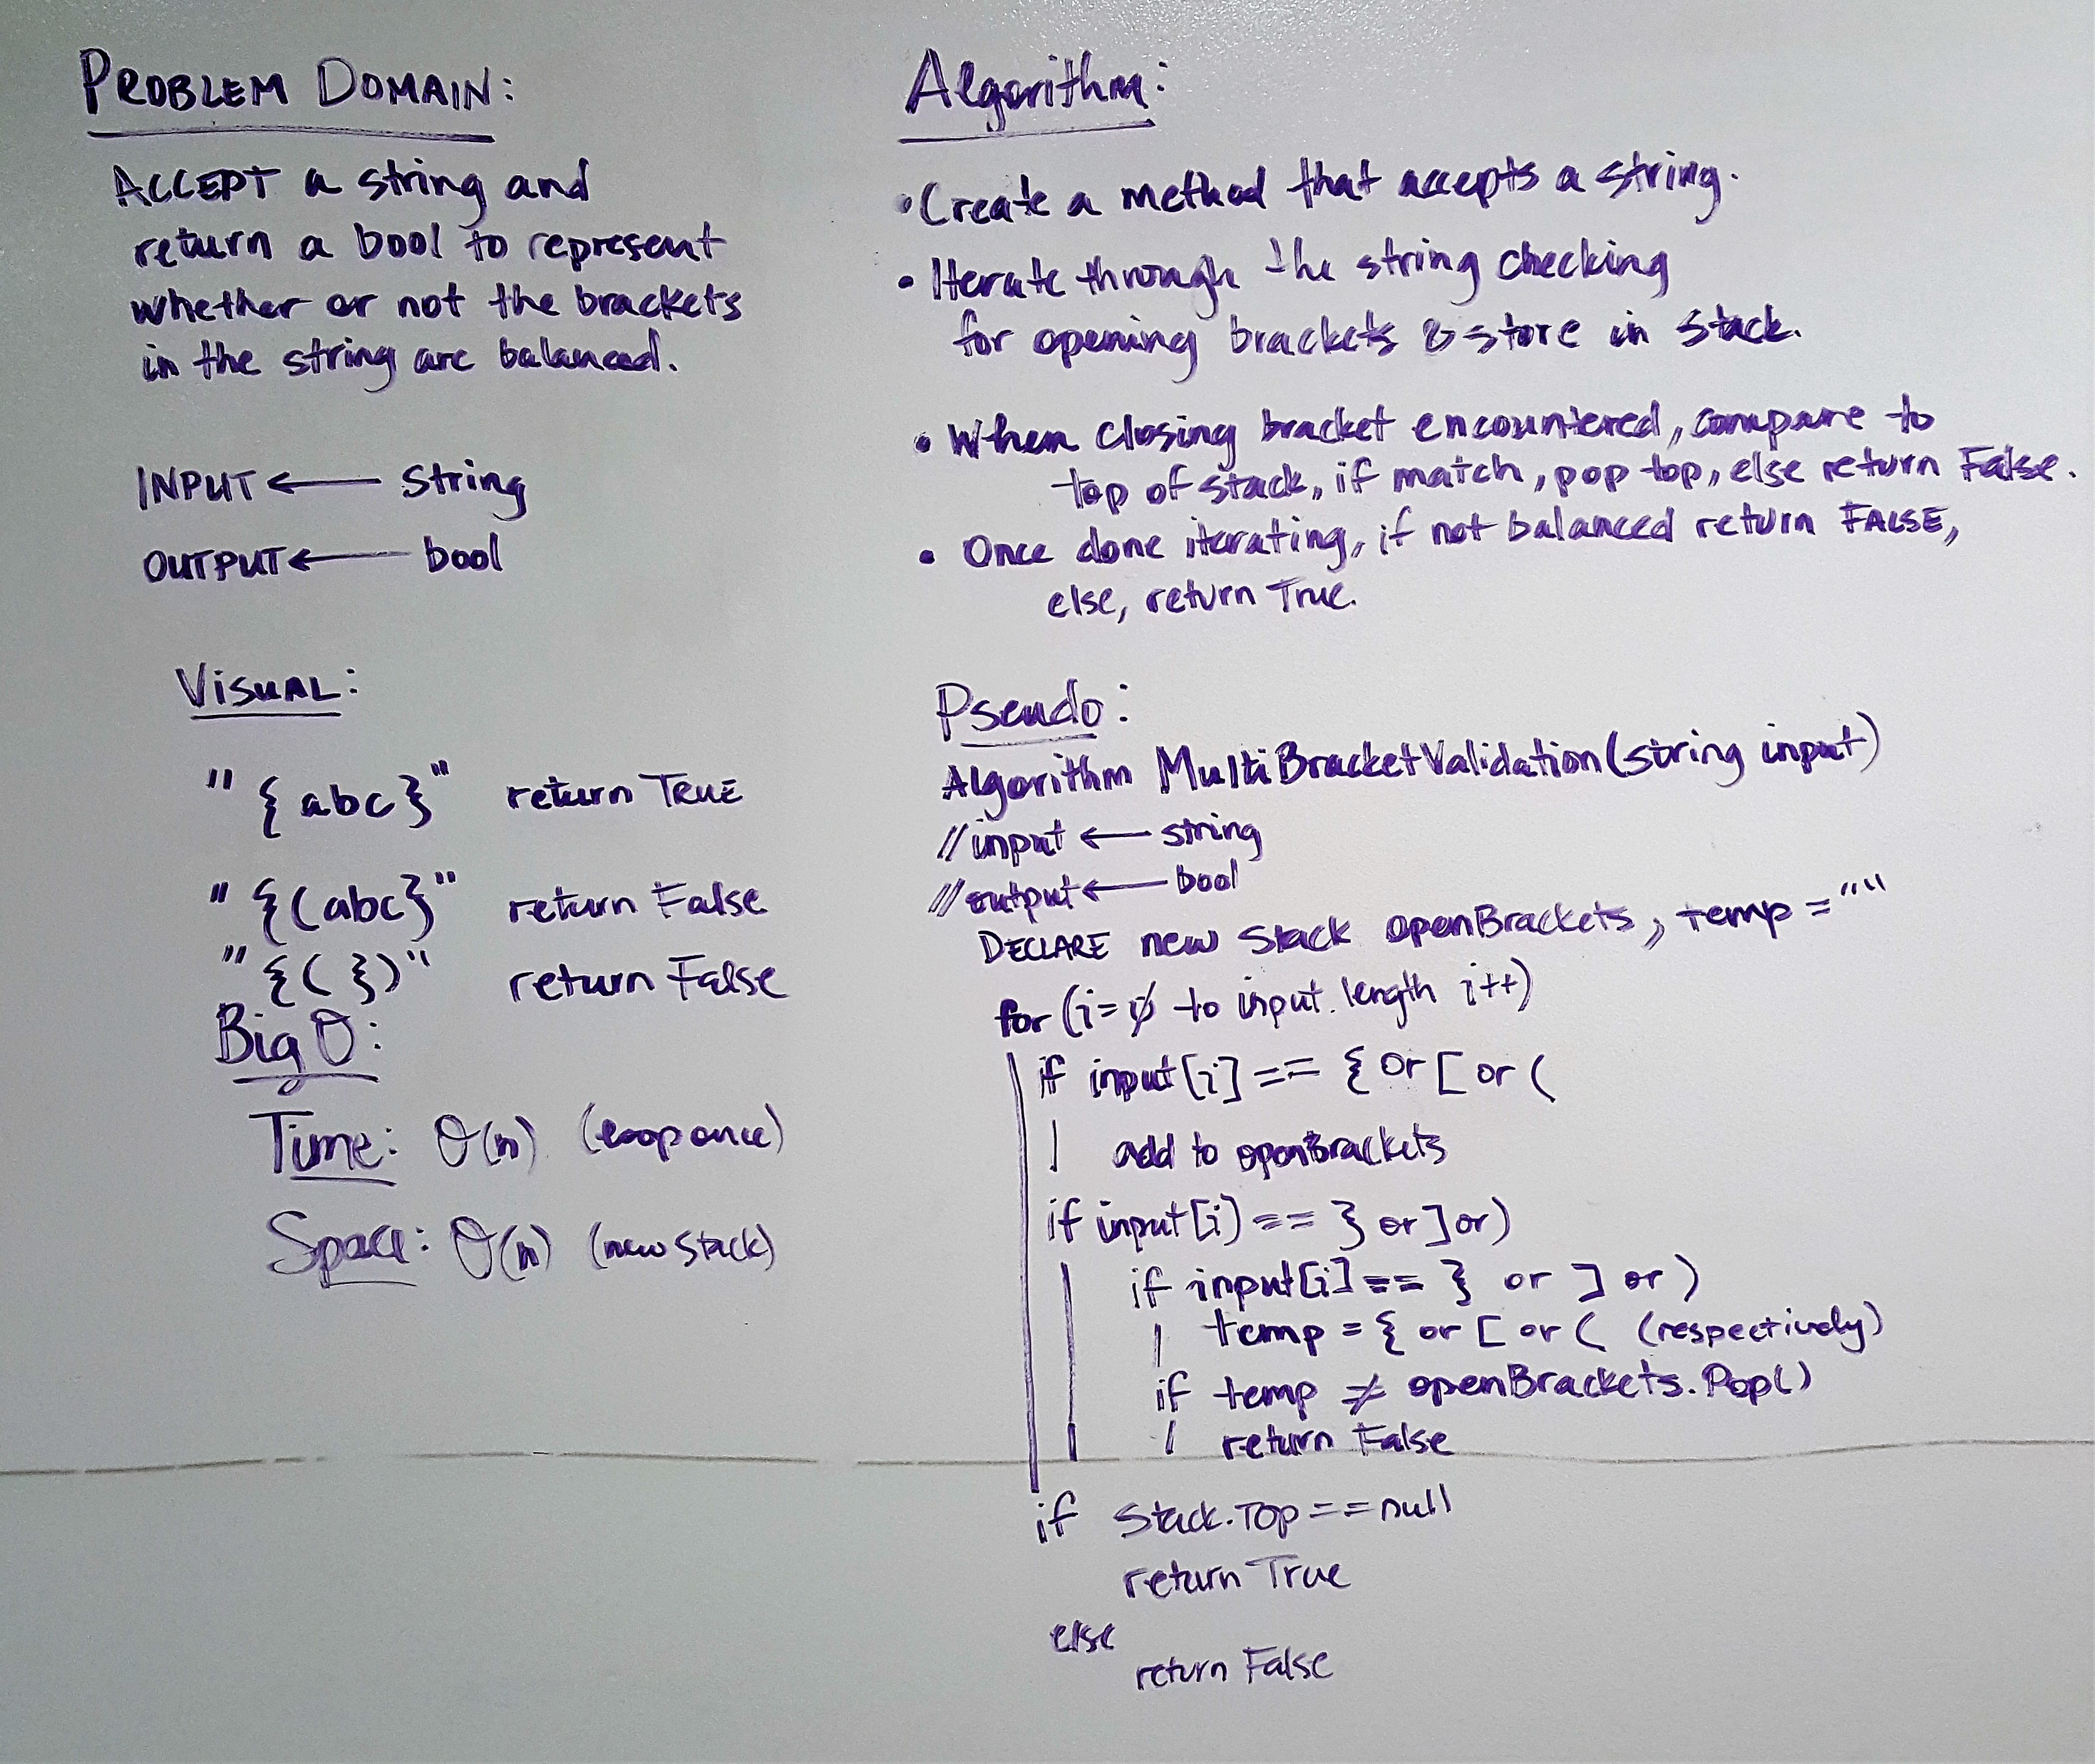 PROBLEM DOMAIN:
ACCEPT a string and
return a bool to represent
whether or not the brackets
in the string are balanced.
INPUT ← string
OUTPUT ← bool
VISUAL:
"{abc}" return TRUE
"{(abc}" return False
"{(})" return False
Big O:
Time: O(n) (loop once)
Space: O(n) (new stack)
Algorithm:
• Create a method that accepts a string.
• Iterate through the string checking
for opening brackets & store in stack.
• When closing bracket encountered, compare to
top of stack, if match, pop top, else return False.
• Once done iterating, if not balanced return FALSE,
else, return True.
Pseudo:
Algorithm MultiBracketValidation(string input)
//input ← string
//output ← bool
DECLARE new Stack openBrackets, temp = ""
for (i=0 to input.length i++)
if input[i] == { or [ or (
add to openBrackets
if input[i) == } or ] or )
if input[i] == } or ] or )
temp = { or [ or ( (respectively)
if temp ≠ openBrackets.Pop()
return False
if Stack.Top == null
return True
else
return False